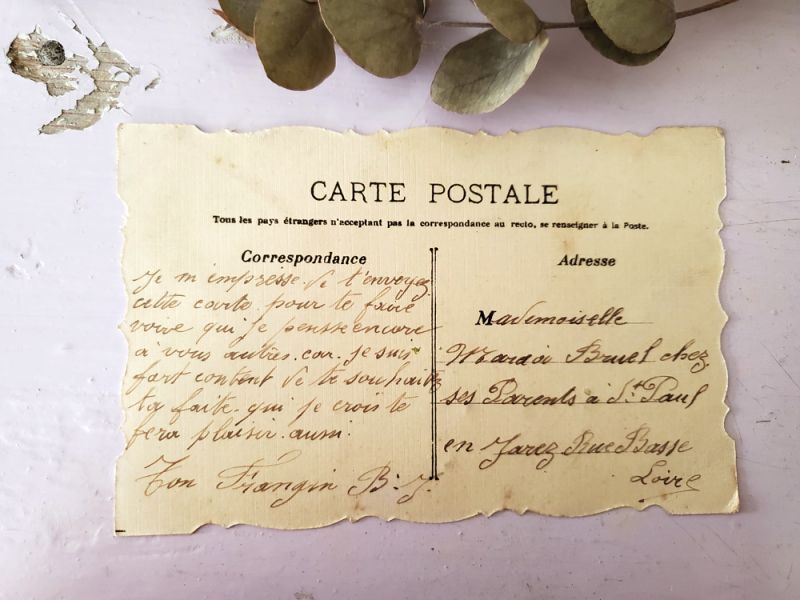 CARTE POSTALE
Tous les pays étrangers n'acceptant pas la correspondance au recto, se renseigner à la Poste.
Correspondance
Je m'empresse de t'envoyez
cette carte pour te faire
voire qui je pensse encore
a vous autres. car. je suis
fort content de te souhaitez
ta faite. qui je crois te
fera plaisir. aussi.
Ton Frangin B. J.
Adresse
Mademoiselle
Bruel chez
ses Parents à St. Paul
en Jarez Rue Basse
Loire